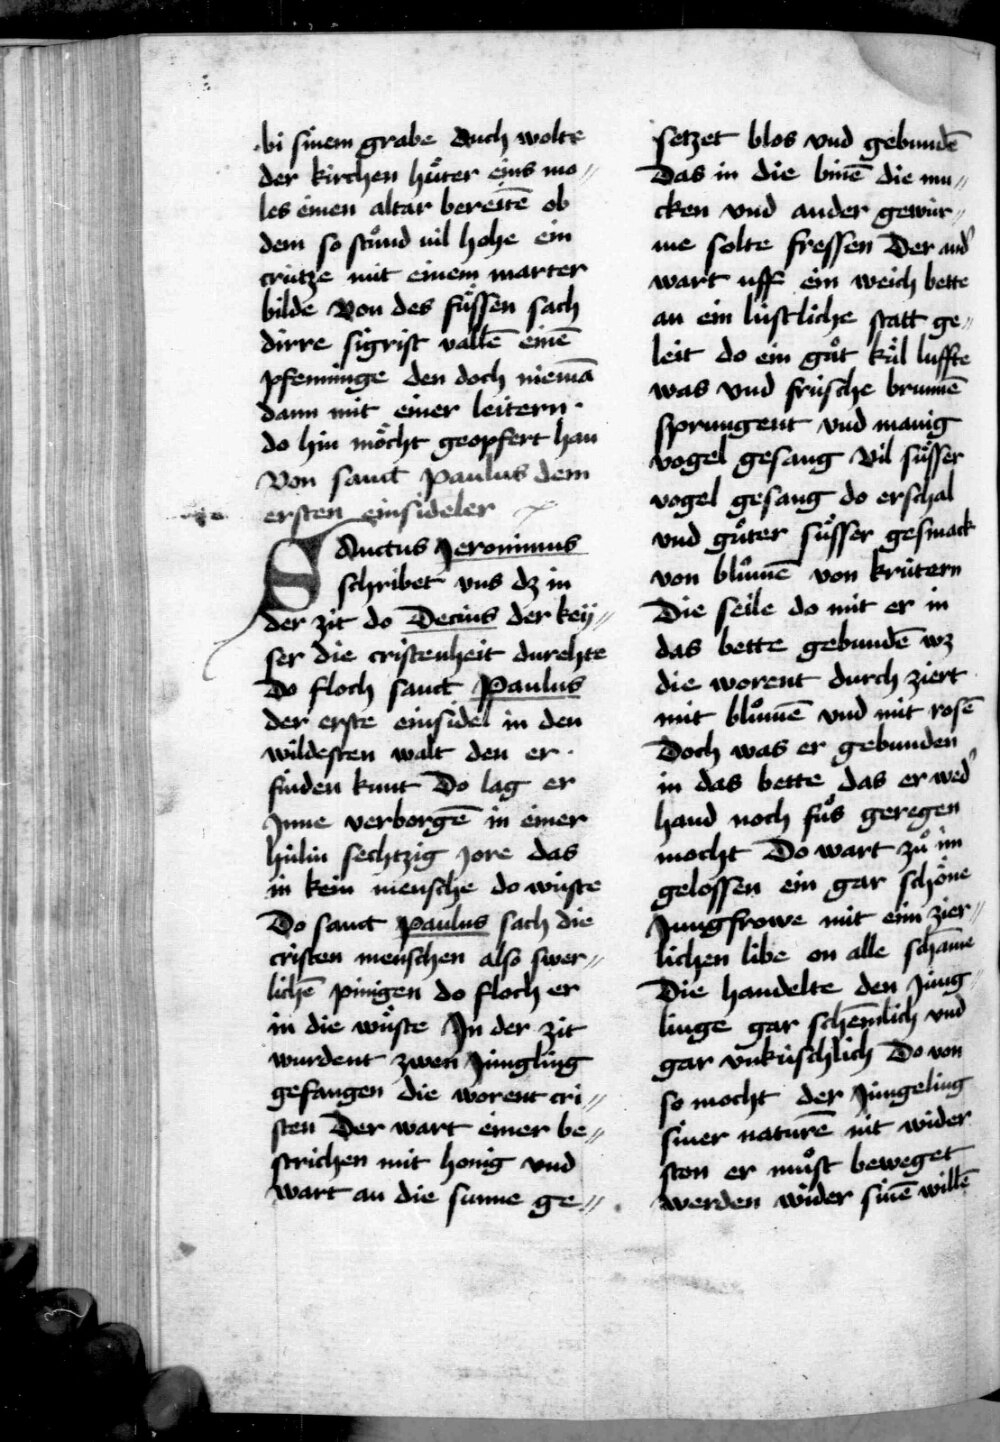 bi sinem grabe Auch wolte
der kirchen hůter eins mo⸗
les einen altar bereitē ob
dem so stůnd vil hohe ein
crütze mit einem marter
bilde Von des fůssen sach
dirre sigrist vallē einē
pfenninge den doch niemā
dann mit einer leitern ·
do hin mo̊cht geopfert han
Von sanct Paulus dem
ersten einsideler
SAnctus Jeronimus
schribet vns dz in
der zit do Decius der key⸗
ser die cristenheit durehte
Do floch sanct Paulus
der erste einsidel in den
wildesten walt den er ·
finden kunt Do lag er
Jnne verborgē in einer
hülin sechtzig jore das
in kein mensche do wůste
Do sanct paulus sach die
cristen menschen also swer⸗
lichē pinigen do floch er
in die wůste Jn der zit
wurdent zwen Jungling
gefangen die worent cri⸗
sten Der wart einer be⸗
strichen mit honig vnd
wart an die sunne ge⸗
setzet blos vnd gebundē
Das in die binē die mu⸗
cken vnd ander gewür⸗
me solte fressen Der and᾽
wart uff ein weich bette
an ein lustliche statt ge⸗
leit do ein gůt kůl luffte
was vnd früsche brunnē
sprungent vnd manig
vogel gesang Vil sůsser
vogel gesang do erschal
vnd gůter sůsser gesmack
von blůmē von krütern
Die seile do mit er in
das bette gebundē wz
die worent durch ziert
mit blůmē vnd mit rosē
Doch was er gebunden
in das bette das er wed᾽
hand noch fůs geregen
mocht Do wart zů im
gelossen ein gar schöne
Jungfrowe mit eim zier⸗
lichen libe on alle schāme
Die handelte den Jüng⸗
linge gar schēmlich vnd
gar vnküschlich Do von
so mocht der Jüngeling
siner naturē nit wider
ston er můst beweget
werden wider sinē willē